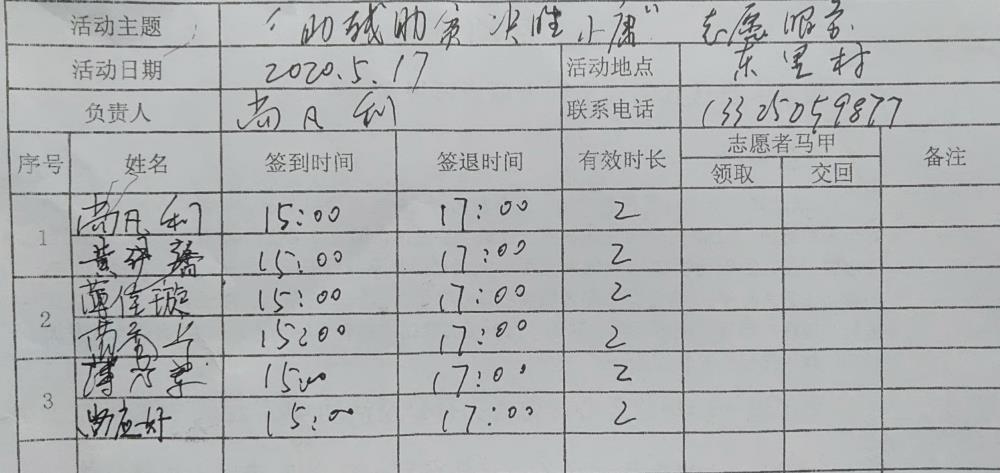 活动主题 “助残助贫 决胜小康” 志愿服务
活动日期 2020.5.17 活动地点 东里村
负责人 尚凡利 联系电话 13325059877
序号 姓名 签到时间 签退时间 有效时长 志愿者马甲 备注
领取 交回
1 尚凡利 15:00 17:00 2
黄 15:00 17:00 2
2 薄佳璇 15:00 17:00 2
15:00 17:00 2
3 15:00 17:00 2
15:00 17:00 2